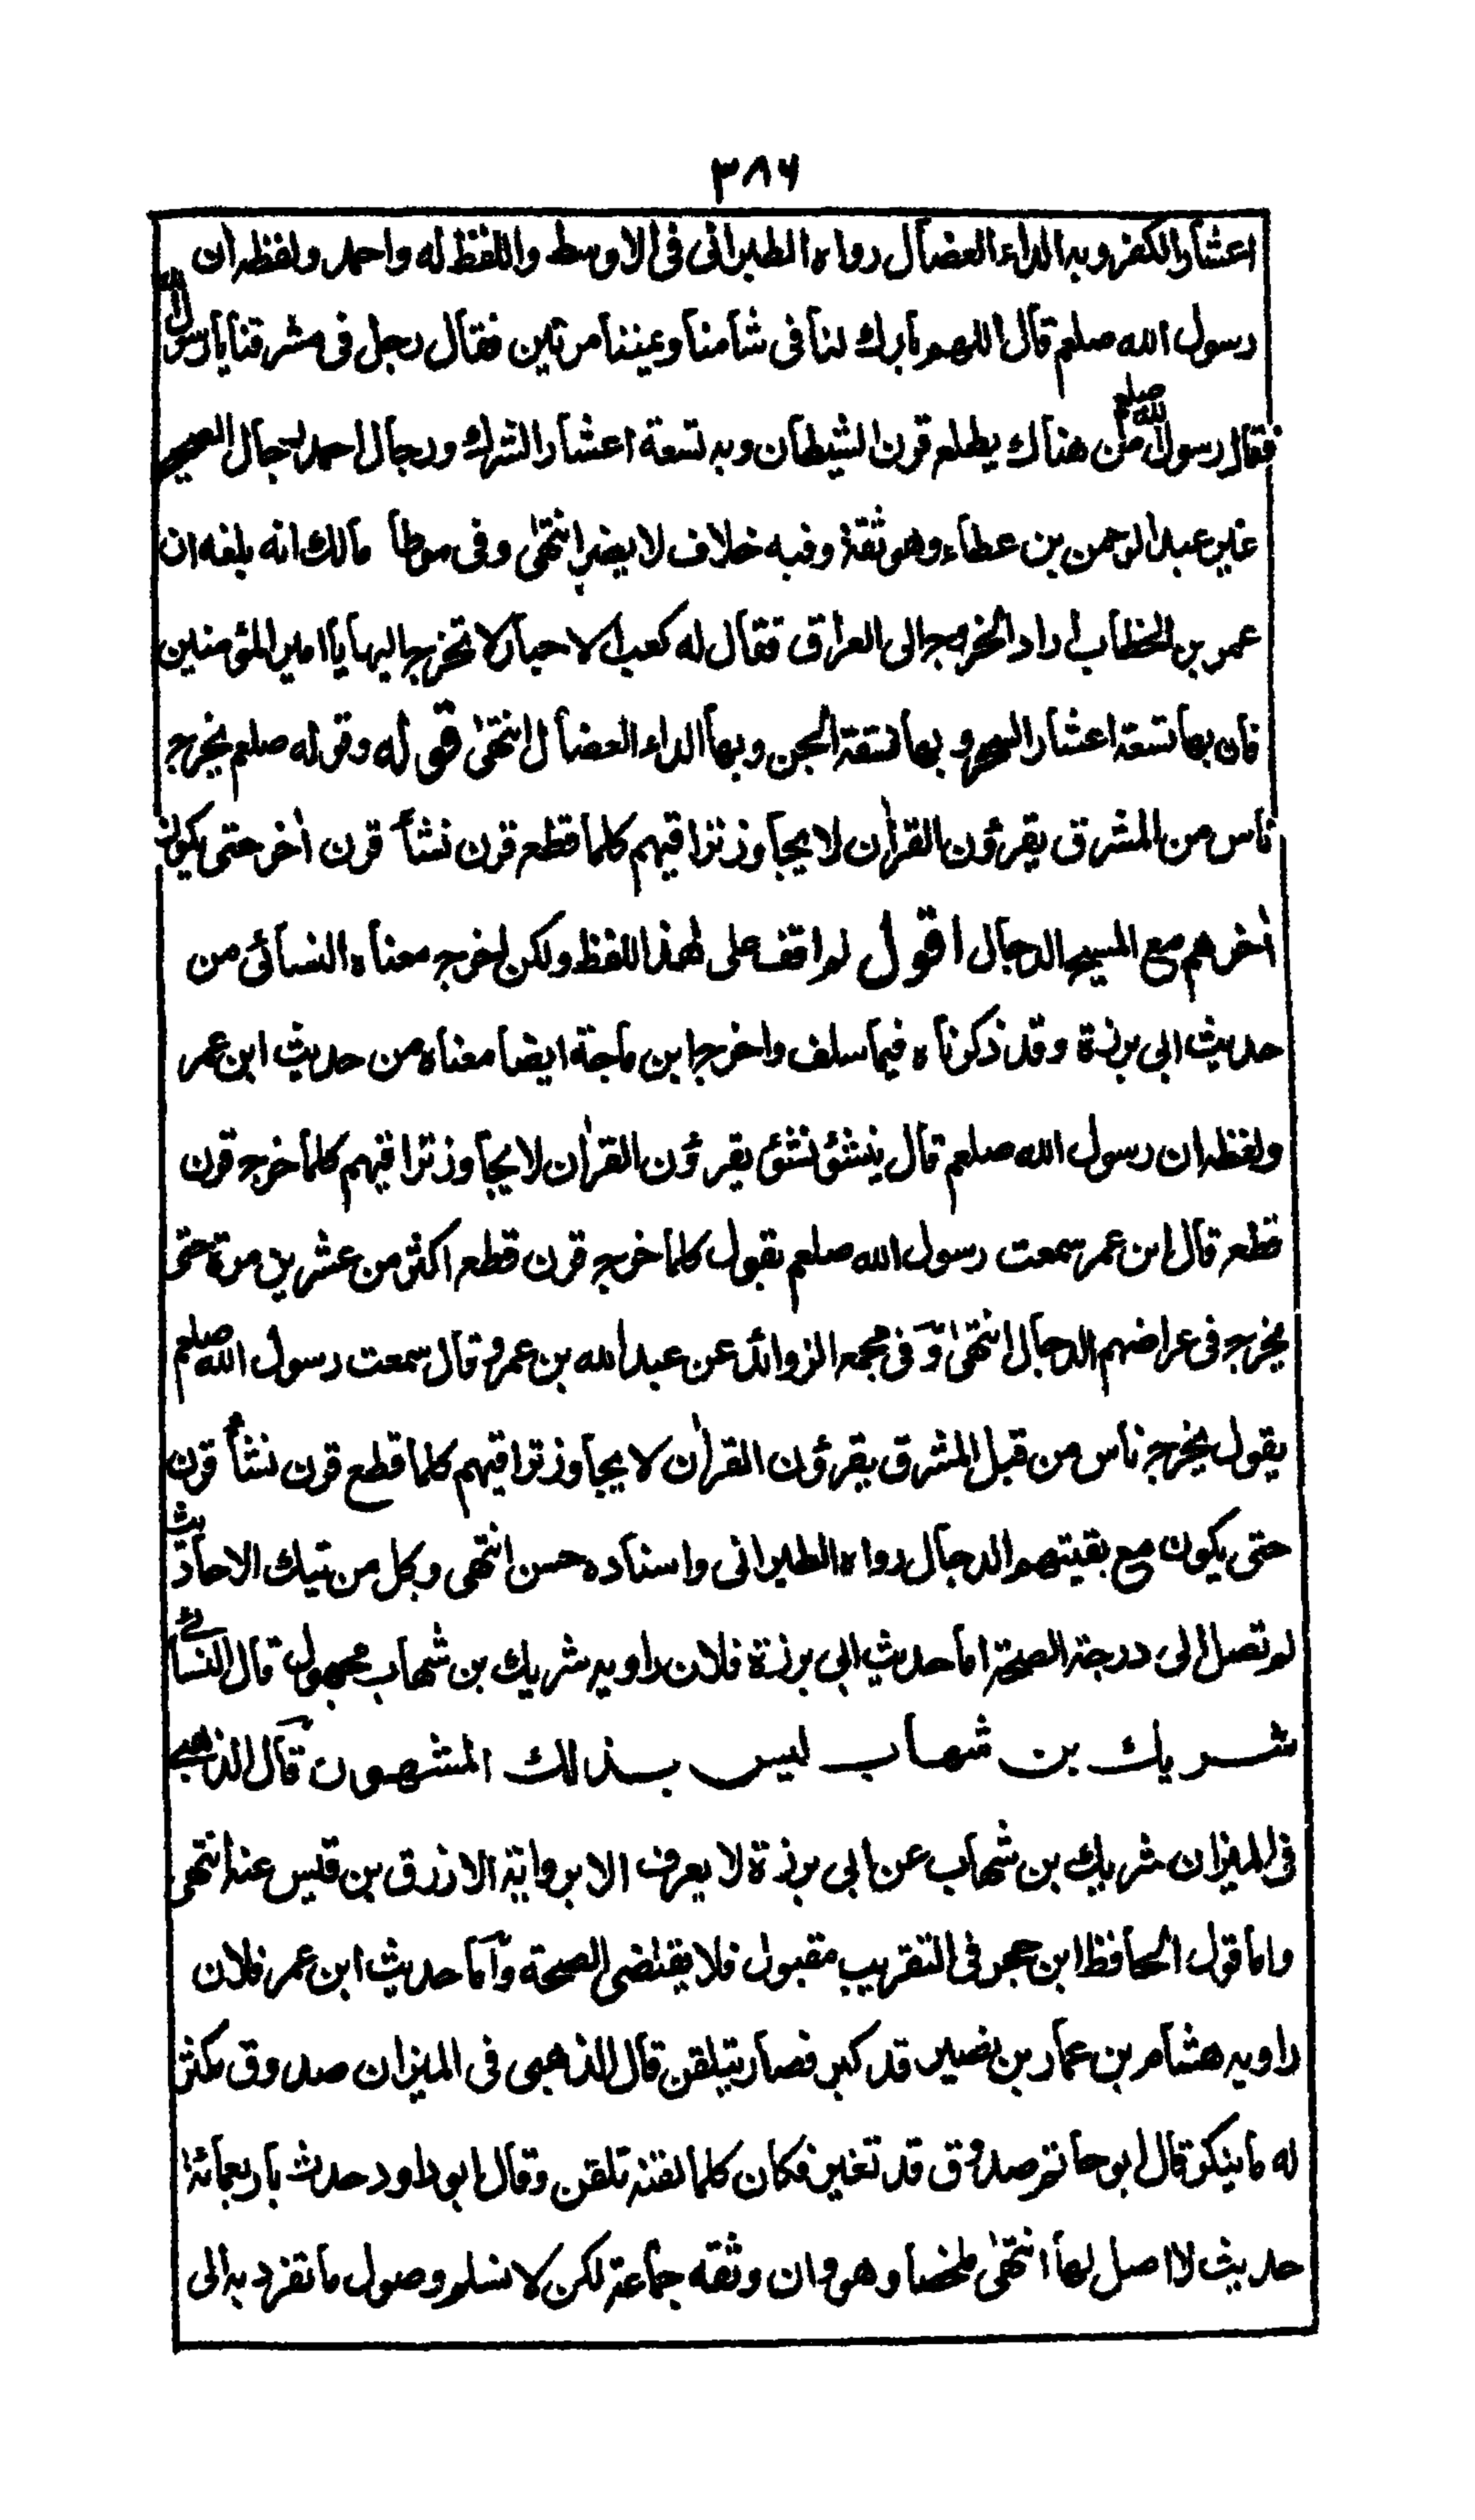 ٣٨٦
اعشار الكفر وبه الداء العضال رواه الطبراني في الاوسط واللفظ له واحمد ولفظه ان
رسول الله صلعم قال اللهم بارك لنا في شامنا ويمننا مرتين فقال رجل في مشرقنا يا رسول الله
فقال رسول الله صلعم من هناك يطلع قرن الشيطان وبه تسعة اعشار الشرك ورجال احمد رجال الصحيح
غير عبد الرحمن بن عطاء وهو ثقة وفيه خلاف لا يضر انتهى وفي موطا مالك انه بلغه ان
عمر بن الخطاب اراد الخروج الى العراق فقال له كعب الاحبار لا تخرج اليها يا امير المؤمنين
فان بها تسعة اعشار السحر و بها فسقة الجن وبها الداء العضال انتهى قوله وقوله صلعم يخرج
ناس من المشرق يقرؤن القراٰن لا يجاوز تراقيهم كلما قطع قرن نشأ قرن اٰخر حتى يكون
اٰخرهم مع المسيح الدجال اقول لم اقف على هٰذا اللفظ ولكن اخرج معناه النسائى من
حديث ابى برزة وقد ذكرناه فيما سلف واخرج ابن ماجة ايضا معناه من حديث ابن عمر
ولفظه ان رسول الله صلعم قال ينشؤ نشؤ يقرؤن القراٰن لا يجاوز تراقيهم كلما خرج قرن
قطع قال ابن عمر سمعت رسول الله صلعم يقول كلما خرج قرن قطع اكثر من عشرين مرة حتى
يخرج في عراضهم الدجال انتهى وفى مجمع الزوائد عن عبد الله بن عمرو قال سمعت رسول الله صلعم
يقول يخرج ناس من قبل المشرق يقرؤن القراٰن لا يجاوز تراقيهم كلما قطع قرن نشأ قرن
حتى يكون مع بقيتهم الدجال رواه الطبرانى واسناده حسن انتهى وكل من تيك الاحاديث
لم تصل الى درجة الصحة اما حديث ابى برزة فلان راويه شريك بن شهاب مجهول قال النسائى
شريك بن شهاب ليس بذالك المشهور قال الذهبي
في الميزان شريك بن شهاب عن ابى برزة لا يعرف الا برواية الازرق بن قيس عنه انتهى
واما قول الحافظ ابن حجر فى التقريب مقبول فلا يقتضى الصحة واما حديث ابن عمر فلان
راويه هشام بن عمار بن نصير قد كبر فصار يتلقن قال الذهبى فى الميزان صدوق مكثر
له ما ينكر قال ابو حاتم صدوق قد تغير فكان كلما لقنه تلقن وقال ابو داود حدث باربعمائة
حديث لا اصل لها انتهى ملخصا وهو وان وثقه جماعة لكن لا نسلم وصول ما تفرد به الى